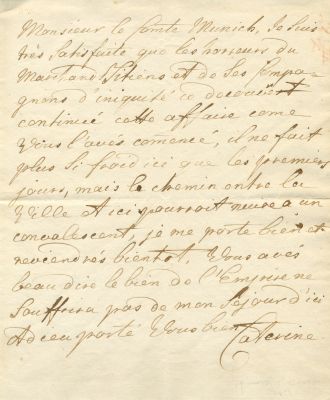 Monsieur le Comte Munich, Je suis
très satisfaite que les horreurs du
et de Ses Compa-
gnons d'iniquité ce decouvrent
continué cette affaire come
Vous l'avés comencé, il ne fait
plus si froid ici que les premiers
jours, mais le chemin entre la
Ville et ici pourroit nuire a un
convalescent, je me porte bien et
reviendrés bientot, Vous avés
beau dire le bien de l'Empire ne
Souffrira pas de mon Sejour d'ici
Adieu porté Vous bien Caterine.